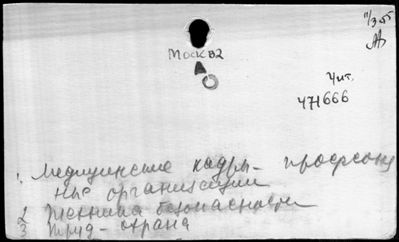 11/3-55
Москва
Чит.
471666
1. Медицинские кадры - профсоюз
ные организации
2 Техника безопасности
3 Труд - охрана